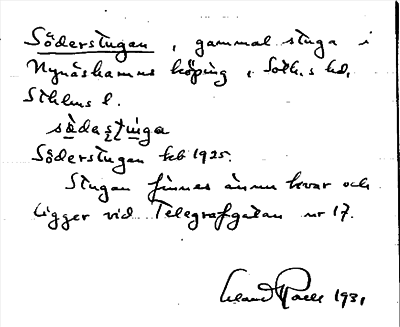 Söderstugan, gammal stuga i
Nynäshamns köping, Soth.s hd,
Sthlms l.
södestuga
Söderstugan kb 1925.
Stugan finnes ännu kvar och
ligger vid Telegrafgatan nr 17.
1931